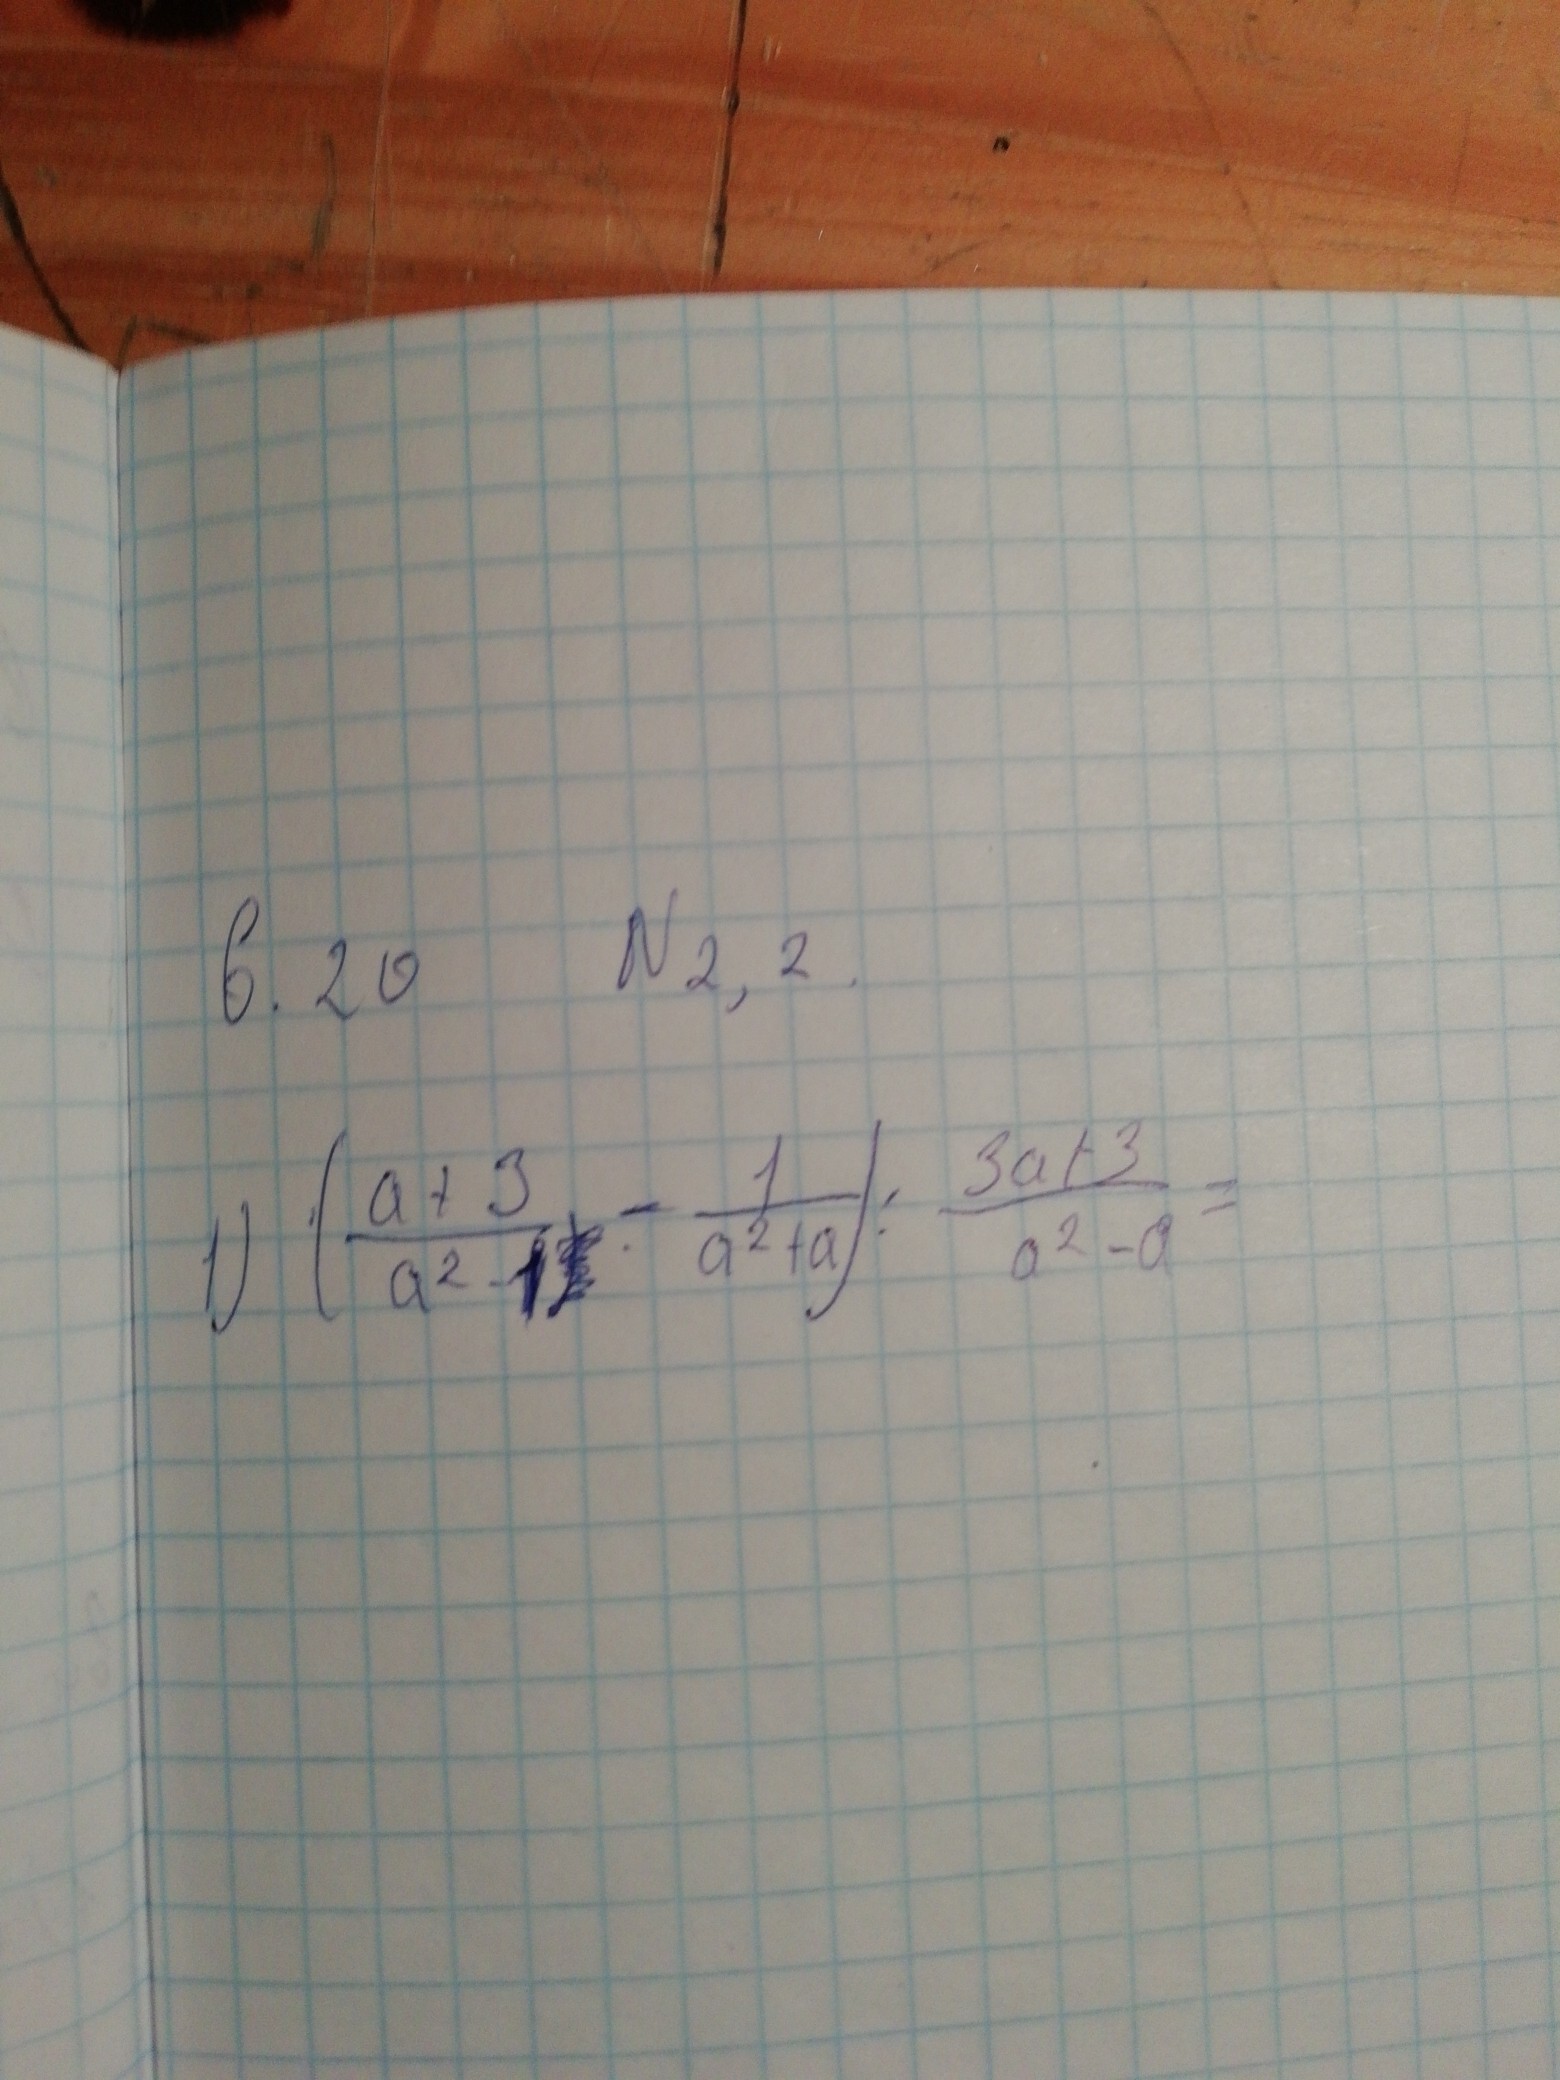 в. 20 N 2, 2.
1) (a + 3 / a² - 1 - 1 / a² + a) : 3a + 3 / a² - a =